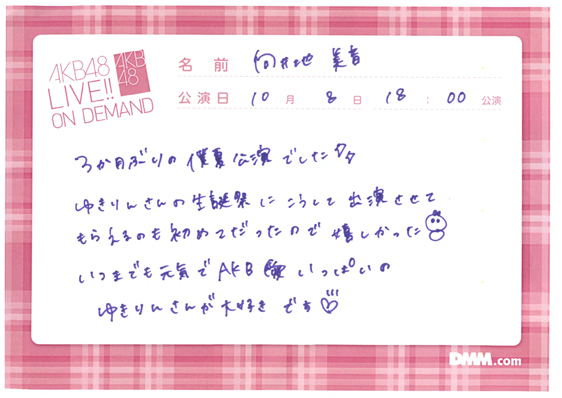 AKB48
LIVE!!
ON DEMAND
AKB
48
名前 向井地 美音
公演日 10月 8日 18:00 公演
3か月ぶりの僕夏公演でした
ゆきりんさんの生誕祭にこうして出演させて
もらえるのも初めてだったので嬉しかった
いつまでも元気でAKB愛いっぱいの
ゆきりんさんが大好きです♡
DMM.com